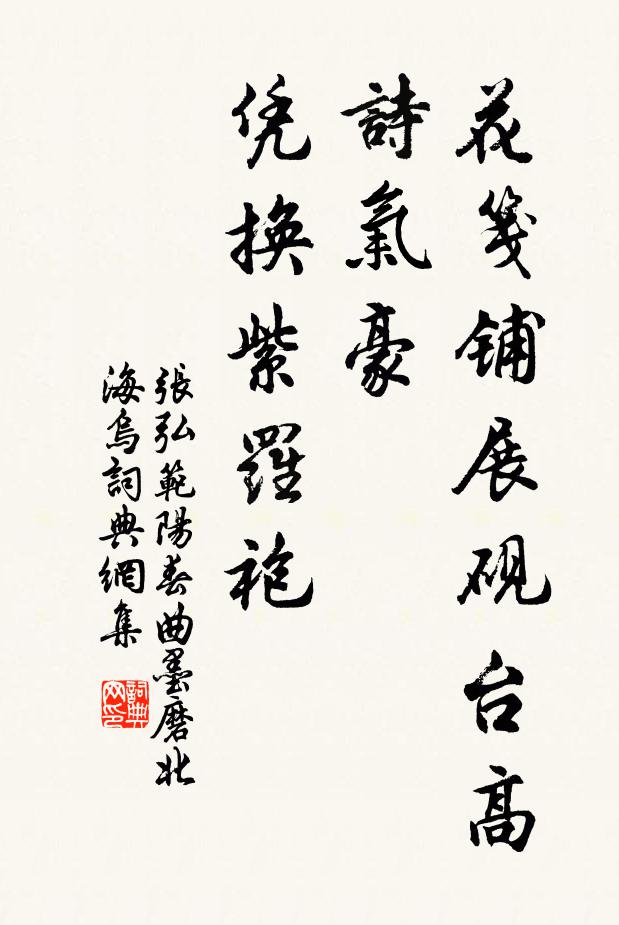 花箋铺展砚台高
詩氣豪
凭換紫羅袍
張弘範陽春曲墨磨北
海烏詞典網集
詞典网印